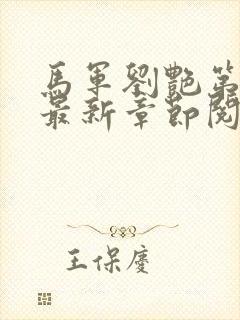 馬軍劉艷第
最新章節閱
王保慶